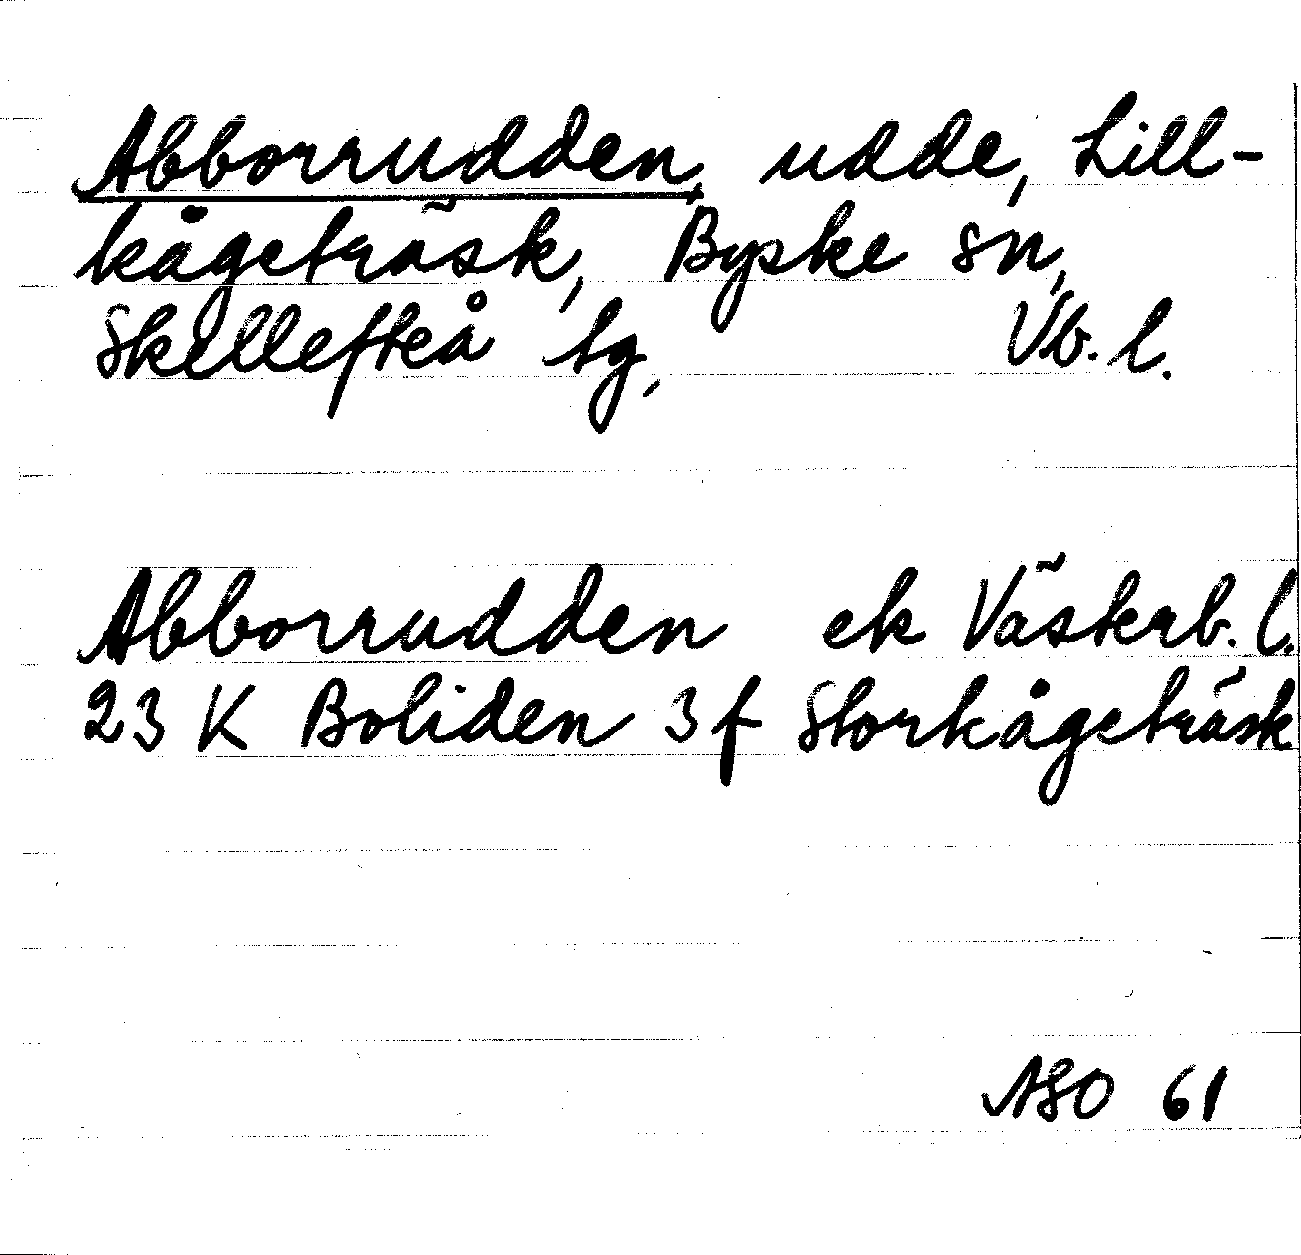 Abborrudden, udde, Lill-
kågeträsk, Byske sn,
Skellefteå tg, Vb. l.
Abborrudden ek Västerb. l.
23 K Boliden 3 f Storkågeträsk
ASO 61